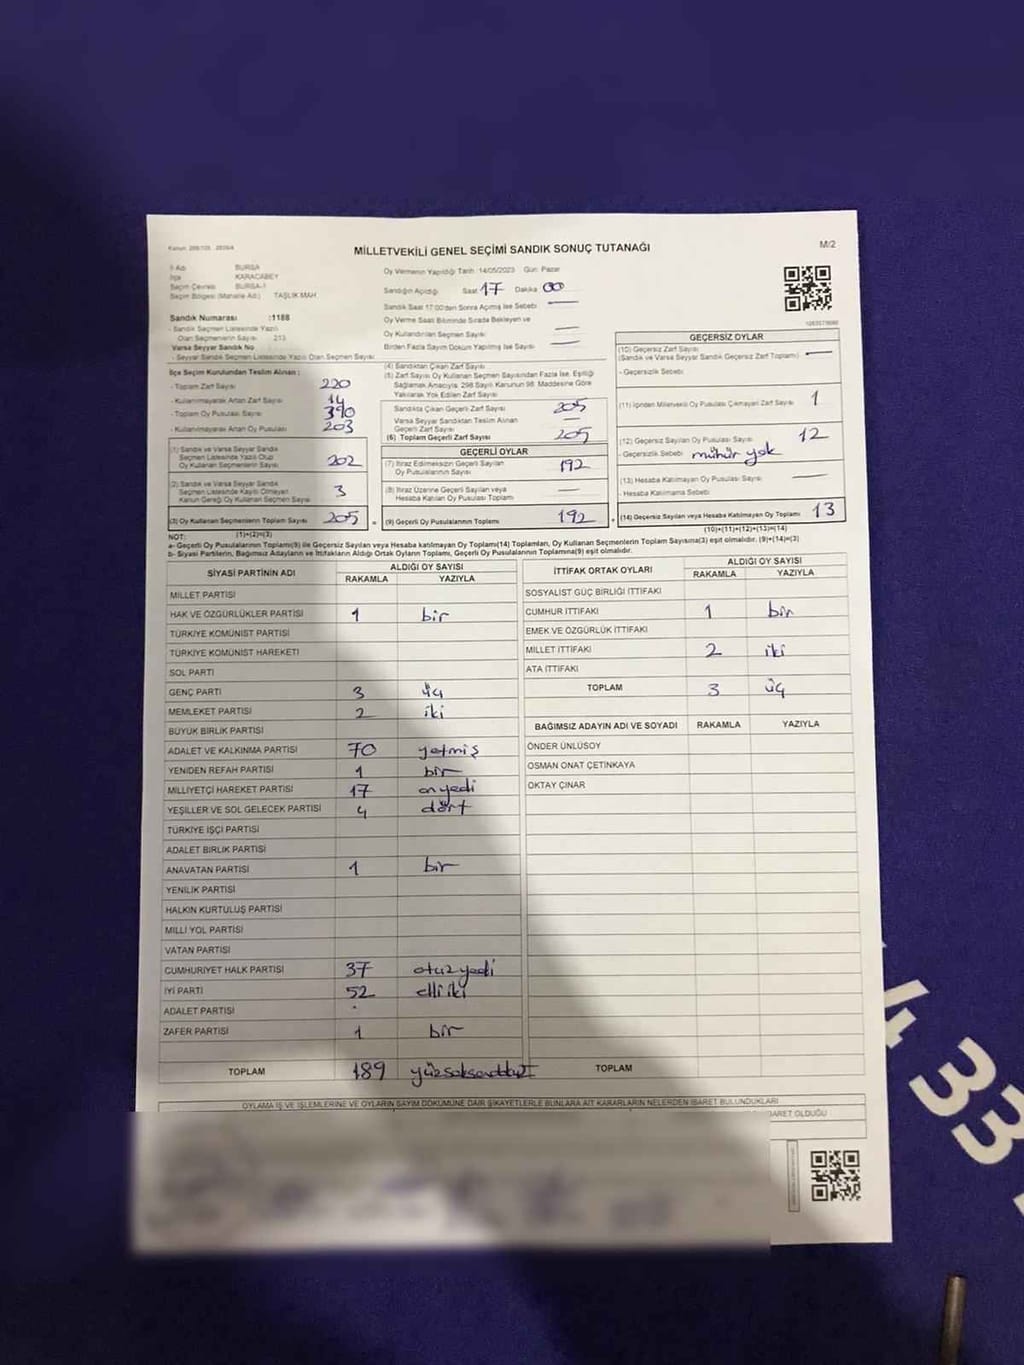 MİLLETVEKİLİ GENEL SEÇİMİ SANDIK SONUÇ TUTANAĞI
M/2
İl Adı BURSA
İlçe KARACABEY
Seçim Çevresi BURSA-1
Seçim Bölgesi (Mahalle Ad.) TAŞLIK MAH
Sandık Numarası :1188
- Sandık Seçmen Listesinde Yazılı
Olan Seçmenlerin Sayısı 213
Varsa Seyyar Sandık No
- Seyyar Sandık Seçmen Listesinde Yazılı Olan Seçmen Sayısı
Oy Vermenin Yapıldığı Tarih 14/05/2023 Gün Pazar
Sandığın Açıldığı Saat 17 Dakika 00
Sandık Saat 17:00'den Sonra Açılmış İse Sebebi —
Oy Verme Saati Bitiminde Sırada Bekleyen ve
Oy Kullandırılan Seçmen Sayısı —
Birden Fazla Sayım Döküm Yapılmış İse Sayısı —
İlçe Seçim Kurulundan Teslim Alınan :
- Toplam Zarf Sayısı 220
- Kullanılmayarak Artan Zarf Sayısı 14
- Toplam Oy Pusulası Sayısı 390
- Kullanılmayarak Artan Oy Pusulası 203
(1) Sandık ve Varsa Seyyar Sandık
Seçmen Listesinde Yazılı Olup
Oy Kullanan Seçmenlerin Sayısı 202
(2) Sandık ve Varsa Seyyar Sandık
Seçmen Listesinde Kayıtlı Olmayan
Kanun Gereği Oy Kullanan Seçmen Sayısı 3
(3) Oy Kullanan Seçmenlerin Toplam Sayısı 205
(1)+(2)=(3)
(4) Sandıktan Çıkan Zarf Sayısı
(5) Zarf Sayısı Oy Kullanan Seçmen Sayısından Fazla İse, Eşitliği
Sağlamak Amacıyla, 298 Sayılı Kanunun 98. Maddesine Göre
Yakılarak Yok Edilen Zarf Sayısı
Sandıkta Çıkan Geçerli Zarf Sayısı 205
Varsa Seyyar Sandıktan Teslim Alınan
Geçerli Zarf Sayısı —
(6) Toplam Geçerli Zarf Sayısı 205
GEÇERLİ OYLAR
(7) İtiraz Edilmeksizin Geçerli Sayılan
Oy Pusulalarının Sayısı 192
(8) İtiraz Üzerine Geçerli Sayılan veya
Hesaba Katılan Oy Pusulası Toplamı —
(9) Geçerli Oy Pusulalarının Toplamı 192
GEÇERSİZ OYLAR
(10) Geçersiz Zarf Sayısı
(Sandık ve Varsa Seyyar Sandık Geçersiz Zarf Toplamı) —
- Geçersizlik Sebebi
(11) İçinden Milletvekili Oy Pusulası Çıkmayan Zarf Sayısı 1
(12) Geçersiz Sayılan Oy Pusulası Sayısı 12
- Geçersizlik Sebebi mühür yok
(13) Hesaba Katılmayan Oy Pusulası Sayısı —
- Hesaba Katılmama Sebebi
(14) Geçersiz Sayılan veya Hesaba Katılmayan Oy Toplamı 13
(10)+(11)+(12)+(13)=(14)
NOT:
a- Geçerli Oy Pusulalarının Toplamı(9) ile Geçersiz Sayılan veya Hesaba katılmayan Oy Toplamı(14) Toplamları, Oy Kullanan Seçmenlerin Toplam Sayısına(3) eşit olmalıdır. (9)+(14)=(3)
b- Siyasi Partilerin, Bağımsız Adayların ve İttifakların Aldığı Ortak Oyların Toplamı, Geçerli Oy Pusulalarının Toplamına(9) eşit olmalıdır.
SİYASİ PARTİNİN ADI ALDIĞI OY SAYISI
RAKAMLA YAZIYLA
MİLLET PARTİSİ
HAK VE ÖZGÜRLÜKLER PARTİSİ 1 bir
TÜRKİYE KOMÜNİST PARTİSİ
TÜRKİYE KOMÜNİST HAREKETİ
SOL PARTİ
GENÇ PARTİ 3 üç
MEMLEKET PARTİSİ 2 iki
BÜYÜK BİRLİK PARTİSİ
ADALET VE KALKINMA PARTİSİ 70 yetmiş
YENİDEN REFAH PARTİSİ 1 bir
MİLLİYETÇİ HAREKET PARTİSİ 17 onyedi
YEŞİLLER VE SOL GELECEK PARTİSİ 4 dört
TÜRKİYE İŞÇİ PARTİSİ
ADALET BİRLİK PARTİSİ
ANAVATAN PARTİSİ 1 bir
YENİLİK PARTİSİ
HALKIN KURTULUŞ PARTİSİ
MİLLİ YOL PARTİSİ
VATAN PARTİSİ
CUMHURİYET HALK PARTİSİ 37 otuzyedi
İYİ PARTİ 52 elliiki
ADALET PARTİSİ
ZAFER PARTİSİ 1 bir
TOPLAM 189 yüzseksendokuz
İTTİFAK ORTAK OYLARI ALDIĞI OY SAYISI
RAKAMLA YAZIYLA
SOSYALİST GÜÇ BİRLİĞİ İTTİFAKI
CUMHUR İTTİFAKI 1 bir
EMEK VE ÖZGÜRLÜK İTTİFAKI
MİLLET İTTİFAKI 2 iki
ATA İTTİFAKI
TOPLAM 3 üç
BAĞIMSIZ ADAYIN ADI VE SOYADI RAKAMLA YAZIYLA
ÖNDER ÜNLÜSOY
OSMAN ONAT ÇETİNKAYA
OKTAY ÇINAR
TOPLAM
OYLAMA İŞ VE İŞLEMLERİNE VE OYLARIN SAYIM DÖKÜMÜNE DAİR ŞİKAYETLERLE BUNLARA AİT KARARLARIN NELERDEN İBARET BULUNDUKLARI
BARET OLDUĞU